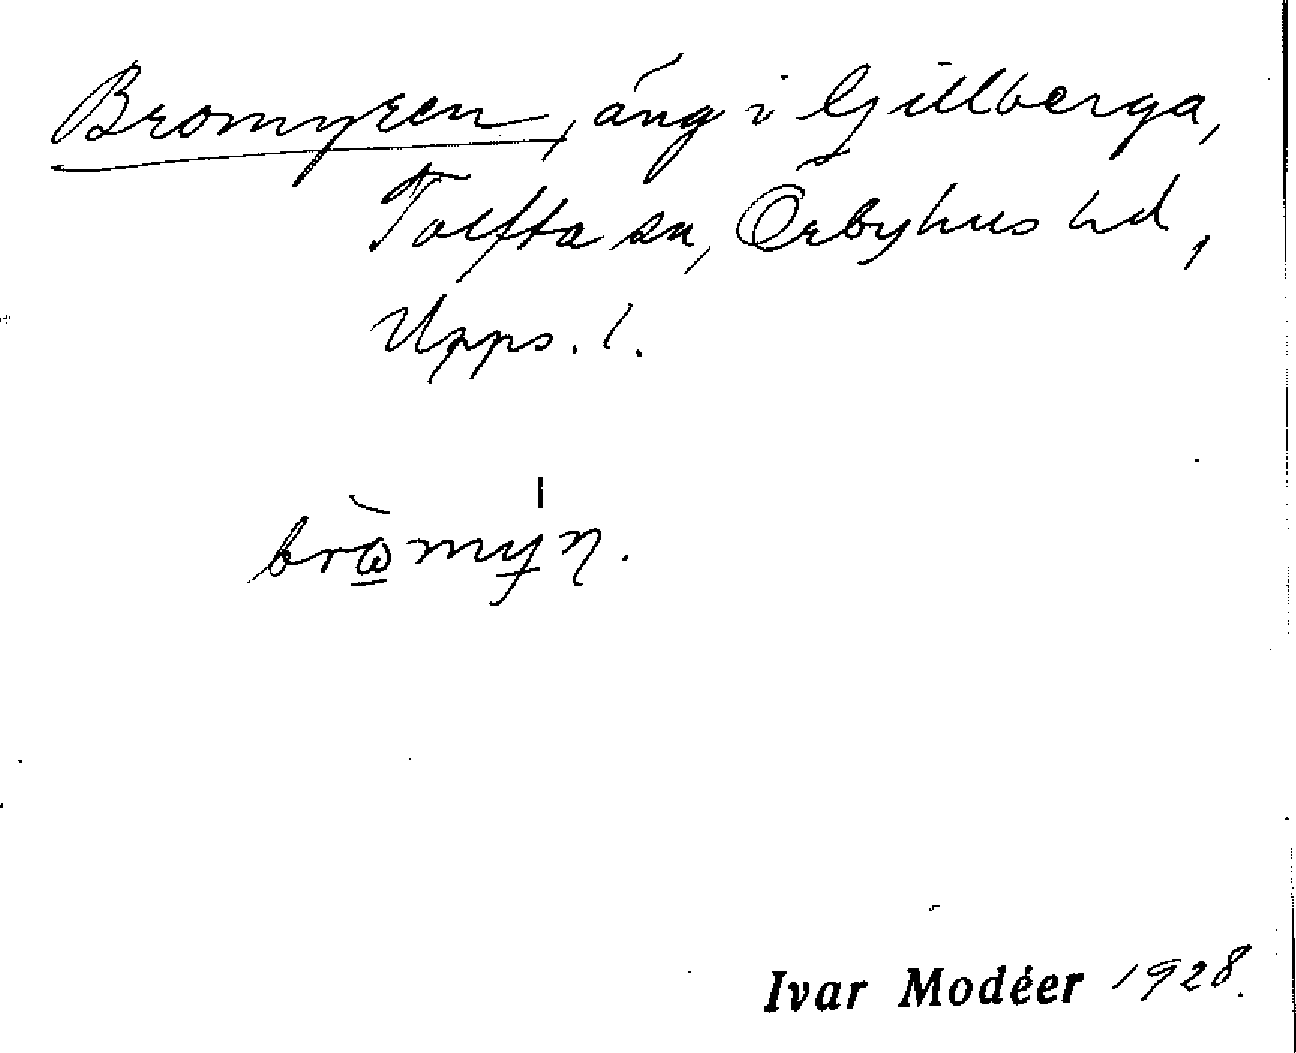 Bromyren, äng i Gillberga,
Tolfta sn, Örbyhus hd,
Upps. l.
brὼ̲mý̵ŋ.
Ivar Modéer 1928.